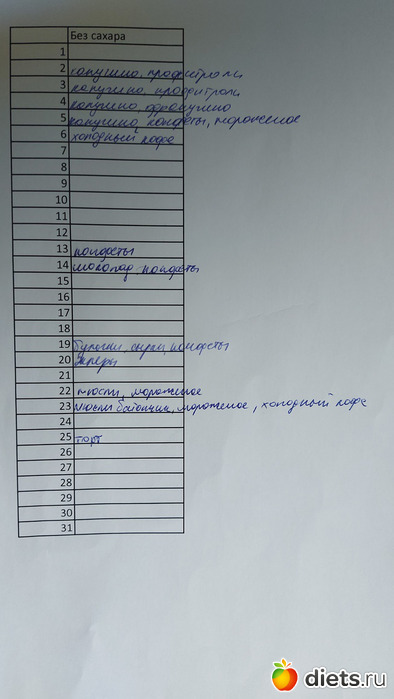 Без сахара
1
2 капучино, профитроли
3 капучино, профитроли
4 капучино,
5 капучино, конфеты, мороженое
6 холодный кофе
7
8
9
10
11
12
13 конфеты
14 шоколад, конфеты
15
16
17
18
19 булочки, сырки, конфеты
20 эклеры
21
22 мюсли, мороженое
23 мюсли батончик, мороженое, холодный кофе
24
25 торт
26
27
28
29
30
31
diets.ru